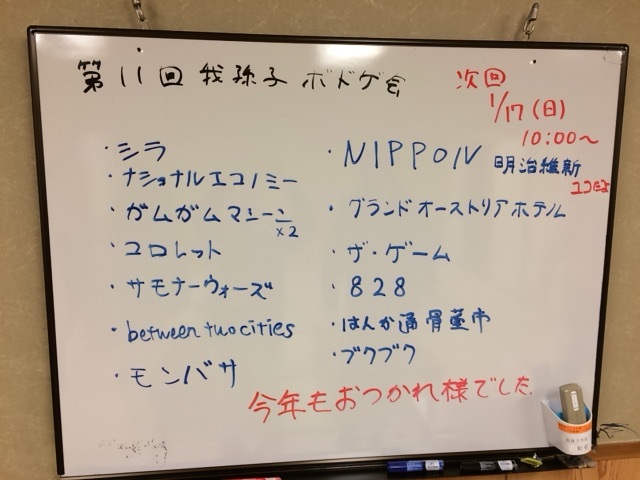 第11回 我孫子 ボドゲ会
次回
1/17(日)
10:00〜
・シラ
・ナショナルエコノミー
・ガムガムマシーン
×2
・コロレット
・サモナーウォーズ
・between two cities
・モンバサ
・NIPPON 明治維新
・グランドオーストリアホテル
・ザ・ゲーム
・828
・はんか通骨董市
・ブクブク
今年もおつかれ様でした